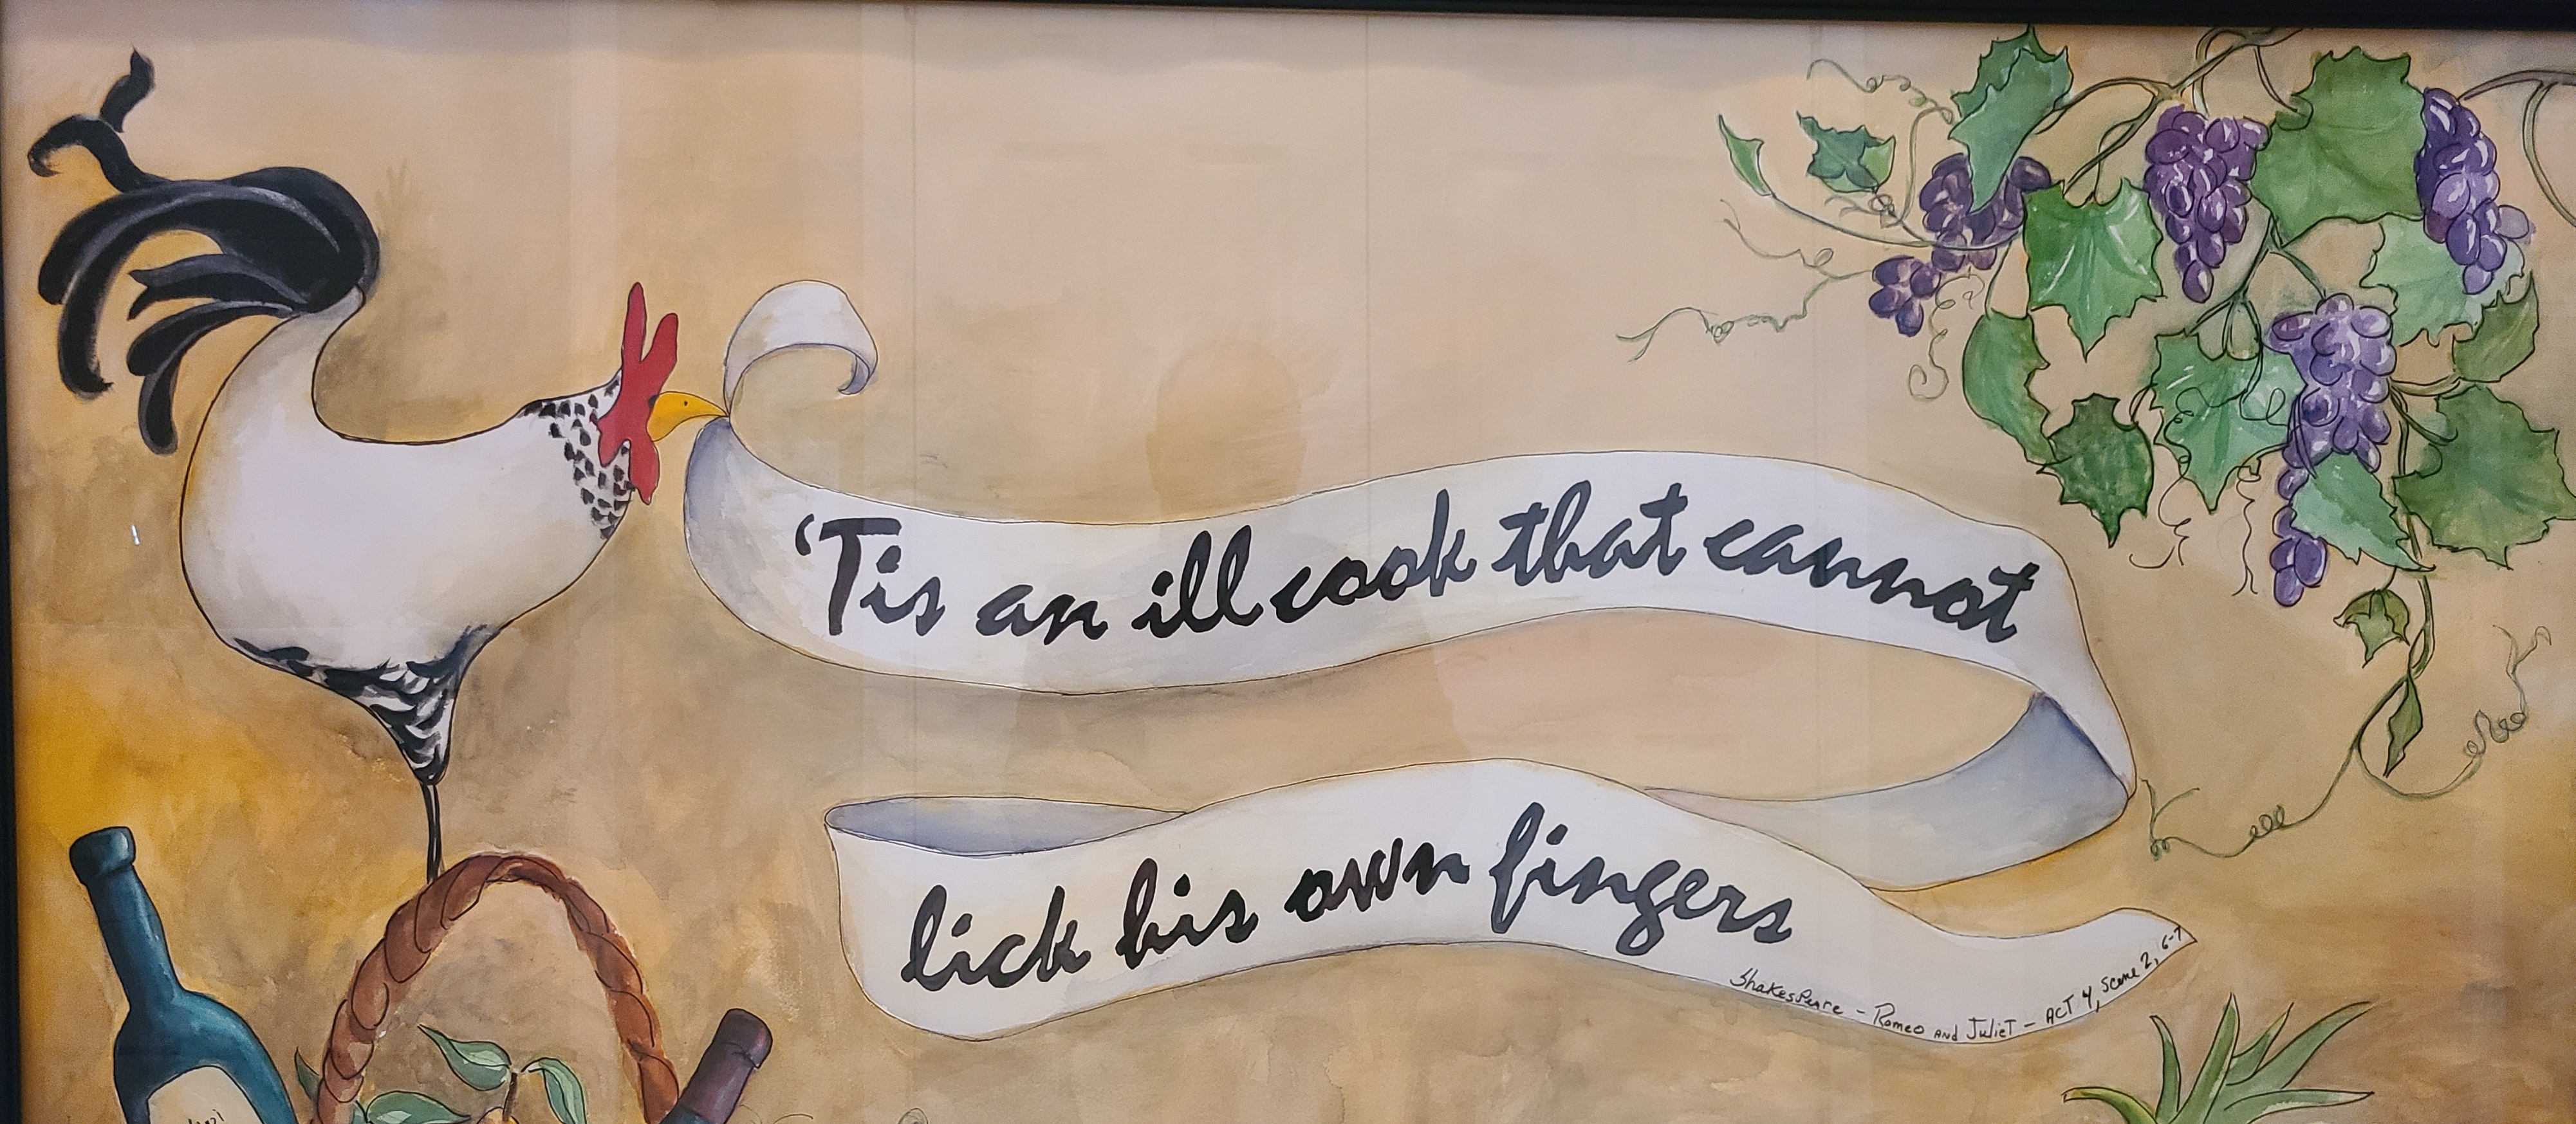 ‘Tis an ill cook that cannot
lick his own fingers
Shakespeare - Romeo AND Juliet - ACT 4, Scene 2, 6-7